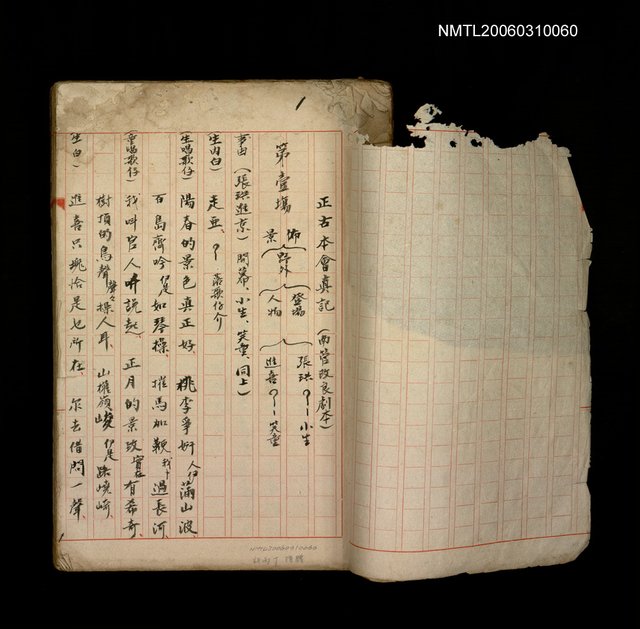 NMTL20060310060
正古本會真記（南管改良劇本）
第壹塲
佈景 野外
登塲人物 張珙〇〡〡小生
進喜〇〡〡笑童
事由（張珙進京）開幕、小生、笑童、同上）
生内白） 走亜、
生唱歌仔） 陽春的景色真正好 桃李爭妍 滿山波
百鳥齊吟 如琴操 摧馬加鞭 過長河
童唱歌仔） 我叫官人 說起、正月的景致實在有希奇、
樹頂的鳥聲聲々操人耳、山㩀嶺峻 路崎
生白） 進喜只塊恰是乜所在、尔去借問一聲、
NMTL20060310060